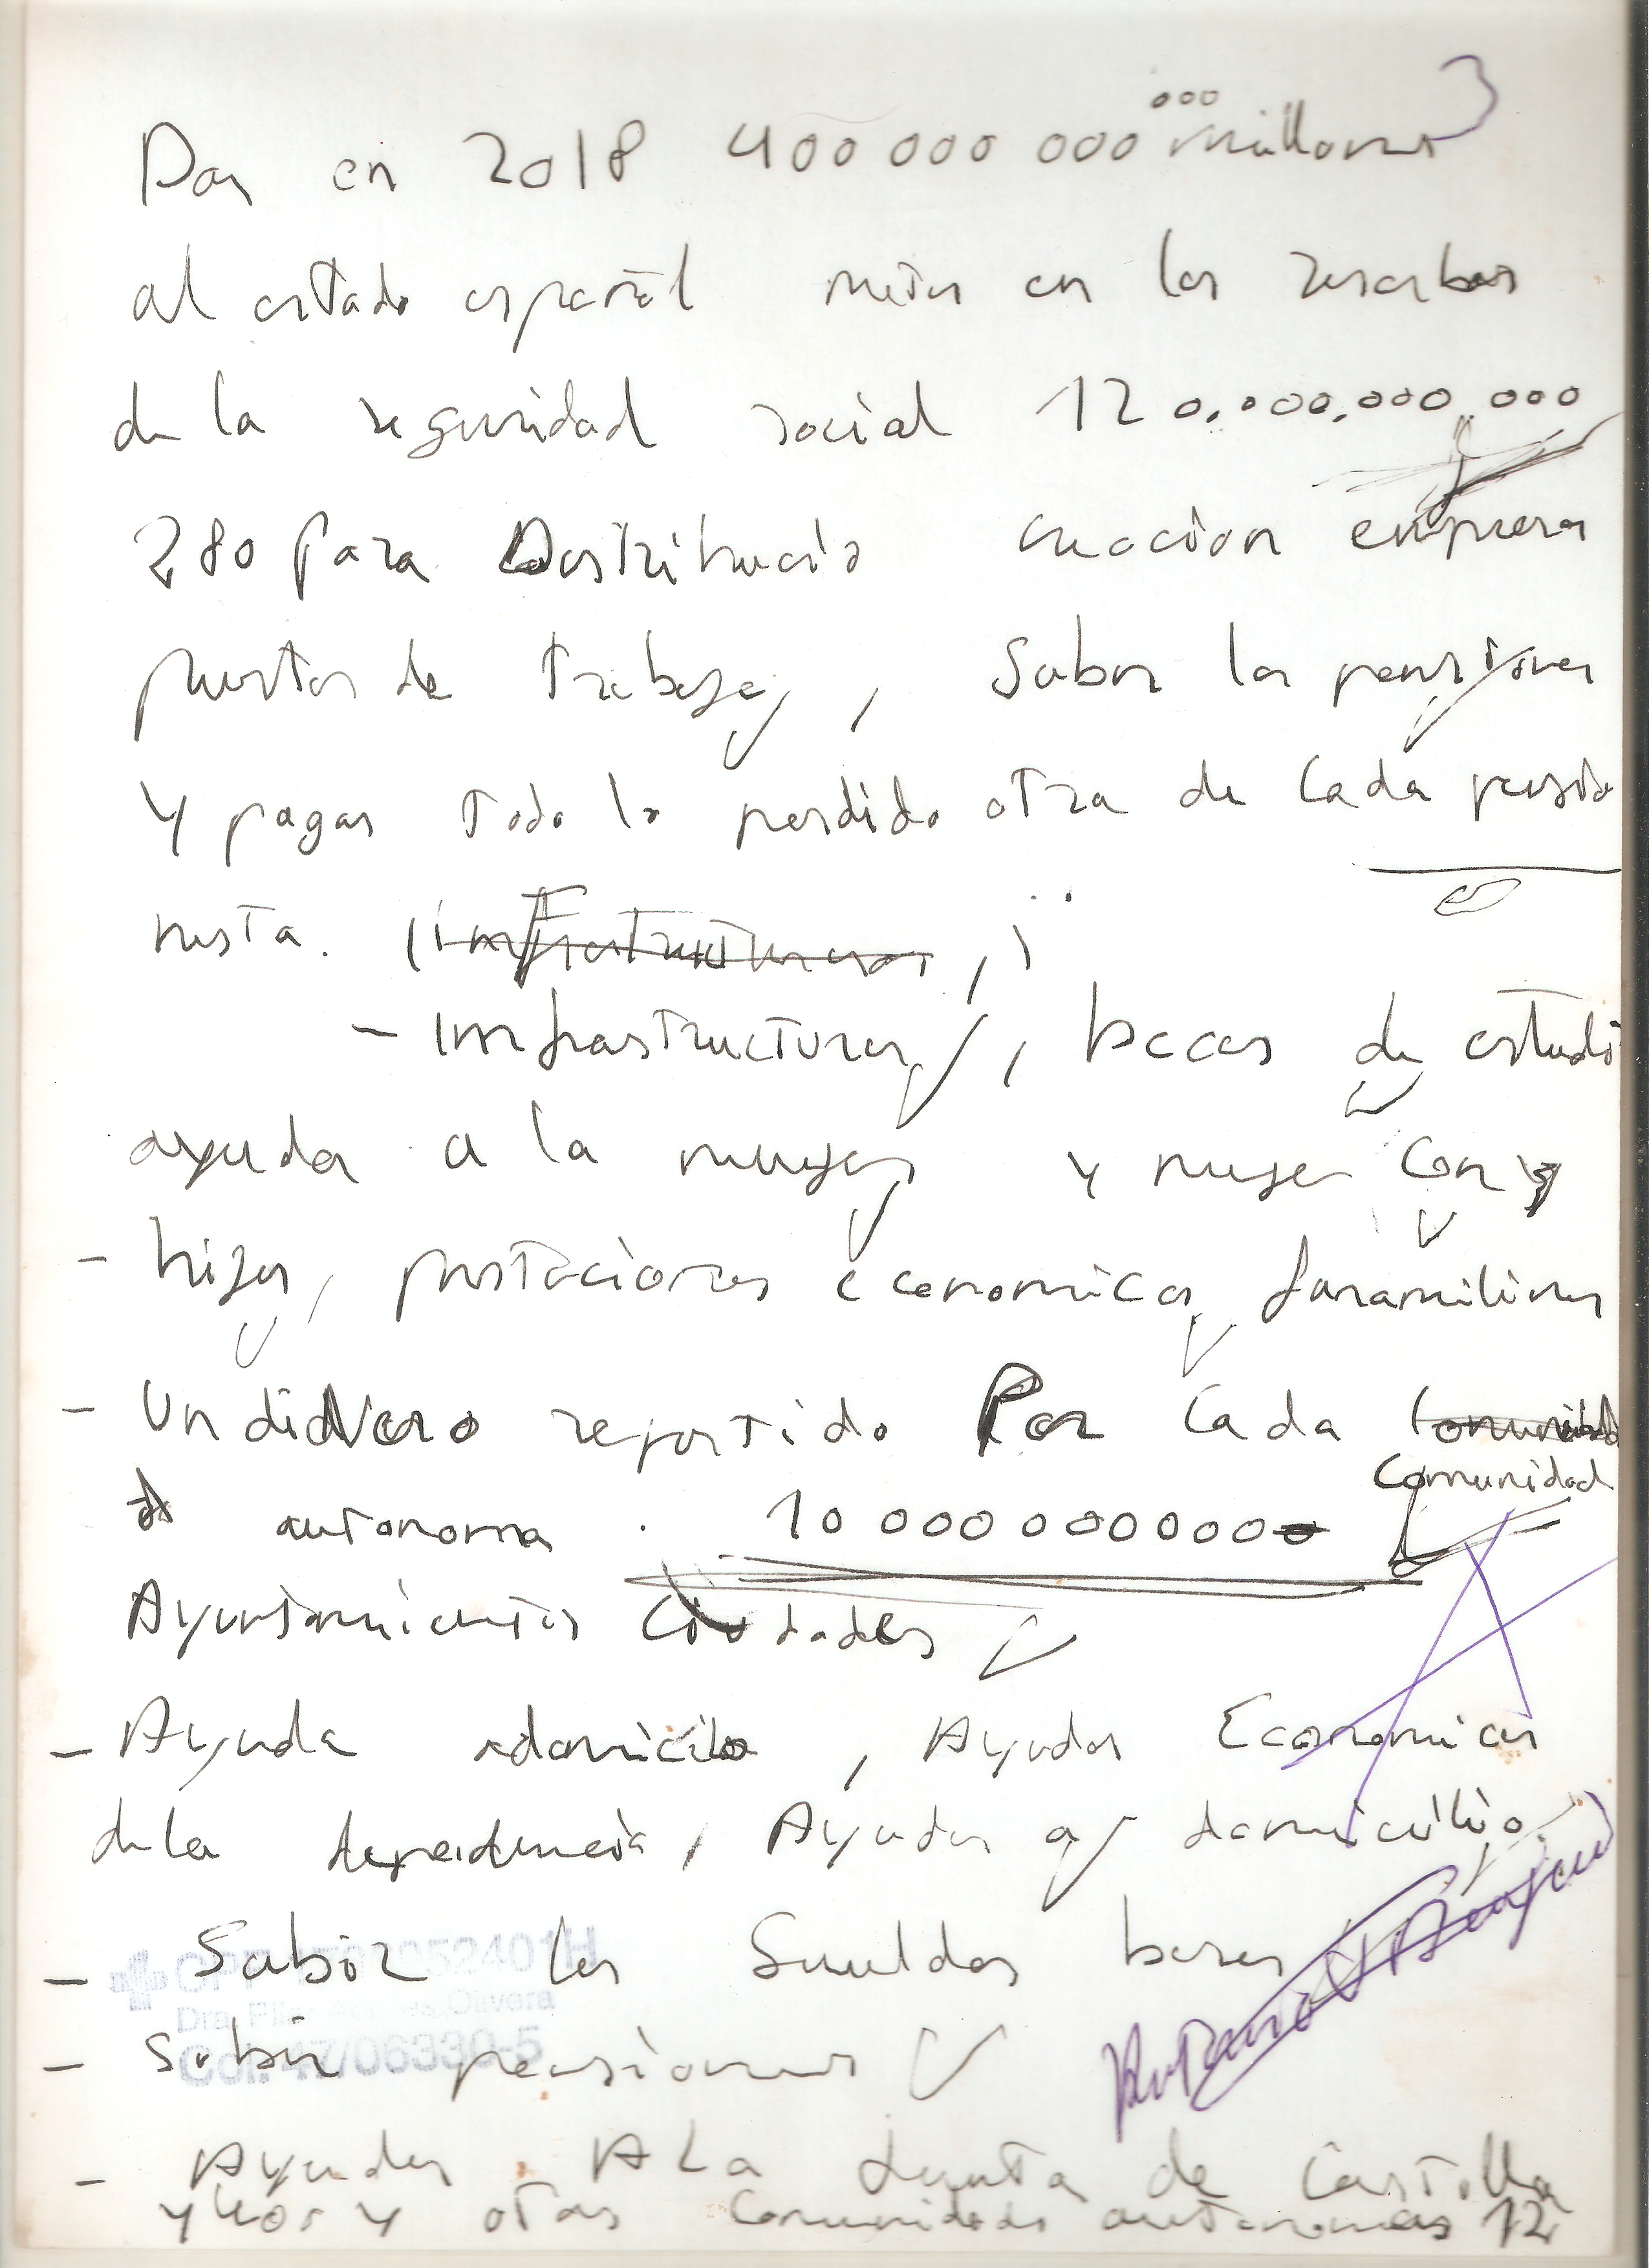 3
000
Dar en 2018 400 000 000 millones
al estado español meter en las reserbas
de la seguridad social 120.000.000.000
280 para Distribucio creacion empresas
puestos de trabajo, Subir las pensiones
y pagar todo lo perdido otra de cada pensio
nista. (infrastructuras, )
- Infrastructuras, becas de estudi
ayuda a la mujer y mujer con
- hijos, prestaciones economicas faramiliares
- Un didNero repartido Por cada
Comunidad
autonoma . 10 000 000 0000
Ayuntamientos Ciudades
- Ayuda adomicilo, Ayudas Economicas
dela dependencia, Ayudas a domicilio
- Subir los Sueldos bases
- Subir pensiones
Dra. Olivera
Col. 47/06330-5
- Ayudas A La Junta de Castilla
y Leos y otas Comunidads autonomas 12